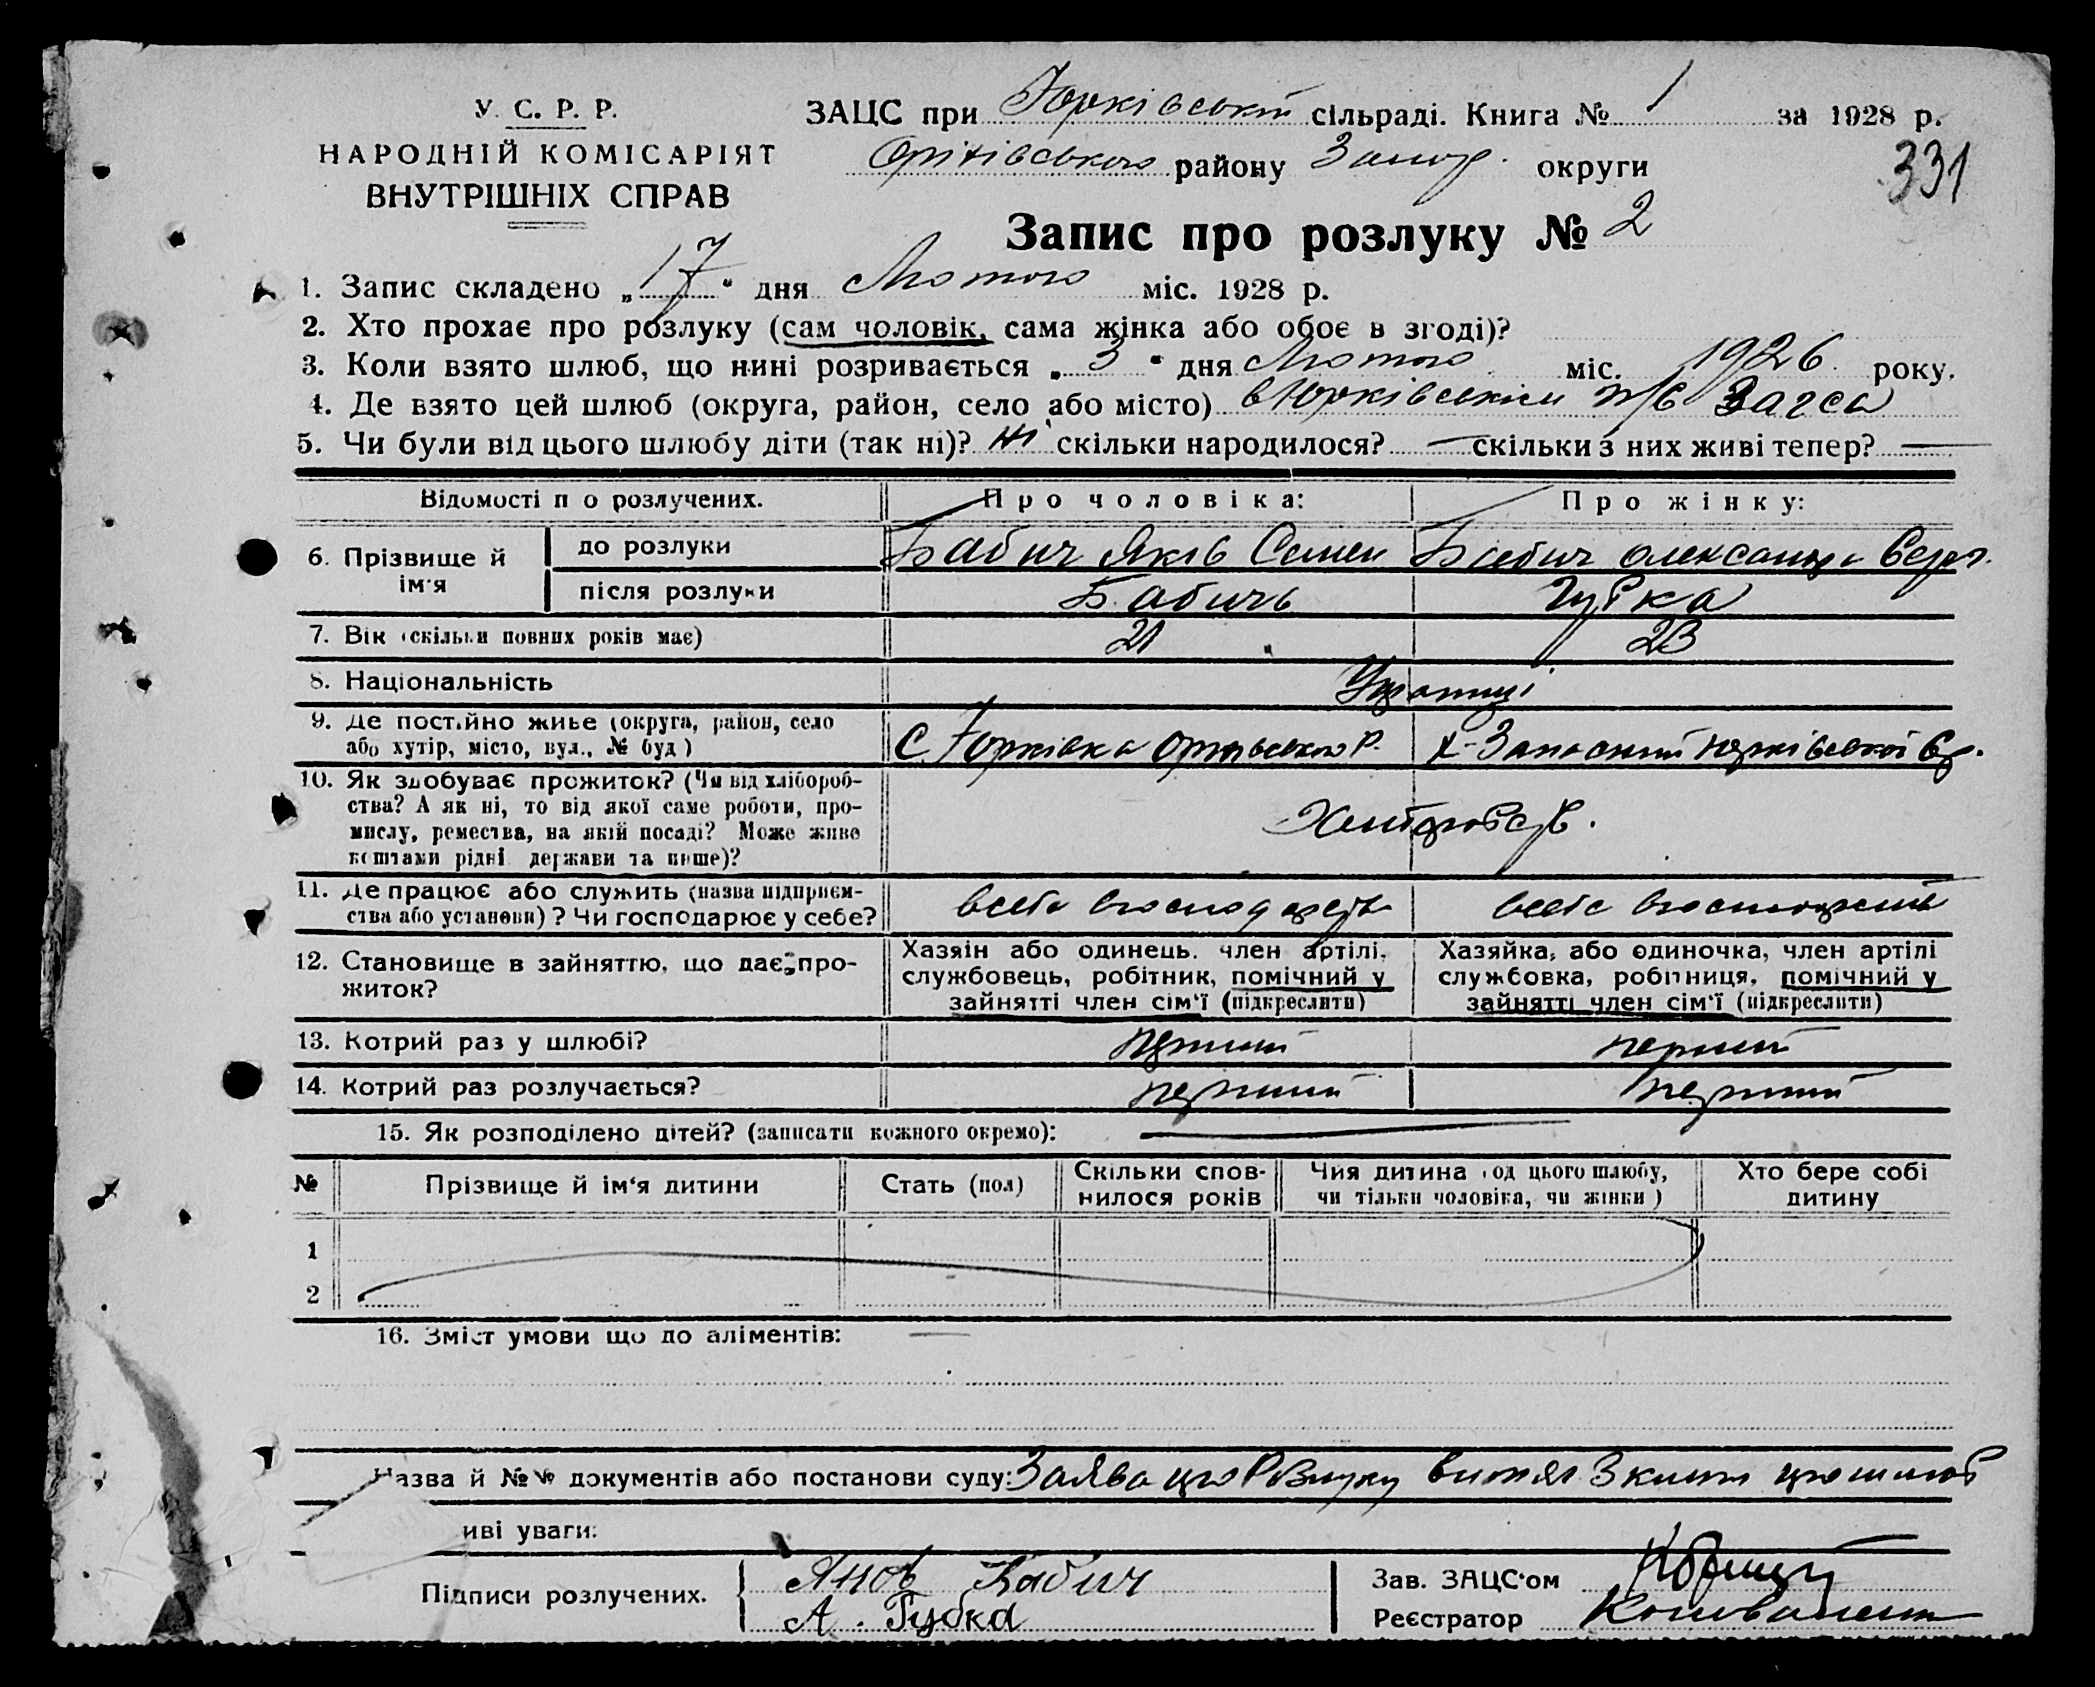 У. С. Р. Р.
НАРОДНІЙ КОМІСАРІЯТ
ВНУТРІШНІХ СПРАВ
ЗАЦС при Юрківській сільраді. Книга № 1 за 1928 р.
Оріхівського району Запор. округи
331
Запис про розлуку № 2
1. Запис складено „17“ дня Лютого міс. 1928 р.
2. Хто прохає про розлуку (сам чоловік, сама жінка або обоє в згоді)?
3. Коли взято шлюб, що нині розривається „3“ дня Лютого міс. 1926 року.
4. Де взято цей шлюб (округа, район, село або місто) в Юрківськім п/с Загса
5. Чи були від цього шлюбу діти (так ні)? Ні скільки народилося? — скільки з них живі тепер? —
Відомості п о розлучених. Про чоловіка: Про жінку:
6. Прізвище й ім'я
до розлуки Бабич Яків Семен Бабич Олександра Серг.
після розлуки Бабичь Губка
7. Вік (скільки повних років має) 21 23
8. Національність Українці
9. Де постійно живе (округа, район, село або хутір, місто, вул., № буд) с. Юрківка Оріхівського р. х. Запасний Юрківської с/р.
10. Як здобуває прожиток? (Чи від хлібороб-
ства? А як ні, то від якої саме роботи, про-
мислу, ремества, на якій посаді? Може живе
коштами рідні держави та инше)?
11. Де працює або служить (назва підприєм-
ства або установи)? Чи господарює у себе? в себе в господарстві в себе в господарстві
12. Становище в зайняттю, що дає про-
житок?
Хазяїн або одинець, член артілі,
службовець, робітник, помічний у
зайнятті член сім'ї (підкреслити)
Хазяйка, або одиночка, член артілі
службовка, робітниця, помічний у
зайнятті член сім'ї (підкреслити)
13. Котрий раз у шлюбі? перший перший
14. Котрий раз розлучається? перший перший
15. Як розподілено дітей? (записати кожного окремо): —
№ Прізвище й ім'я дитини Стать (пол) Скільки спов-
нилося років Чия дитина (од цього шлюбу,
чи тільки чоловіка, чи жінки) Хто бере собі
дитину
1
2
16. Зміст умови що до аліментів: —
Назва й №№ документів або постанови суду: Заява про Розлуку витяг З книги про шлюб
иві уваги:
Підписи розлучених. Яков Бабич
А. Губка
Зав. ЗАЦС'ом
Реєстратор